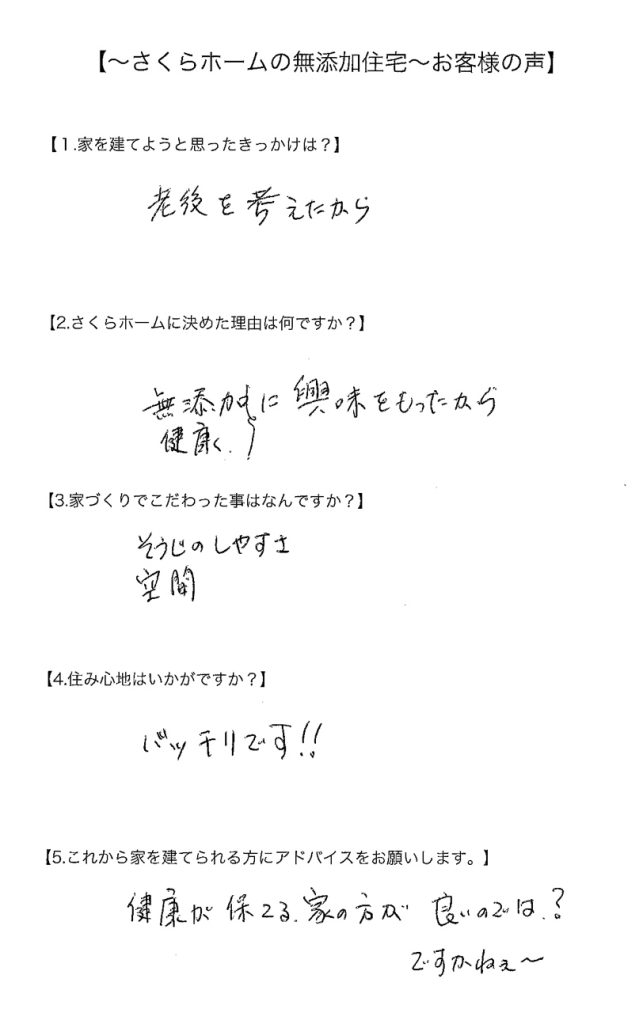 【～さくらホームの無添加住宅～お客様の声】
【１.家を建てようと思ったきっかけは？】
老後を考えたから
【2.さくらホームに決めた理由は何ですか？】
無添加に興味をもったから
健康く
【3.家づくりでこだわった事はなんですか？】
そうじのしやすさ
空間
【4.住み心地はいかがですか？】
バッチリです!!
【5.これから家を建てられる方にアドバイスをお願いします。】
健康が保てる、家の方が良いのでは、?
ですかねぇ～